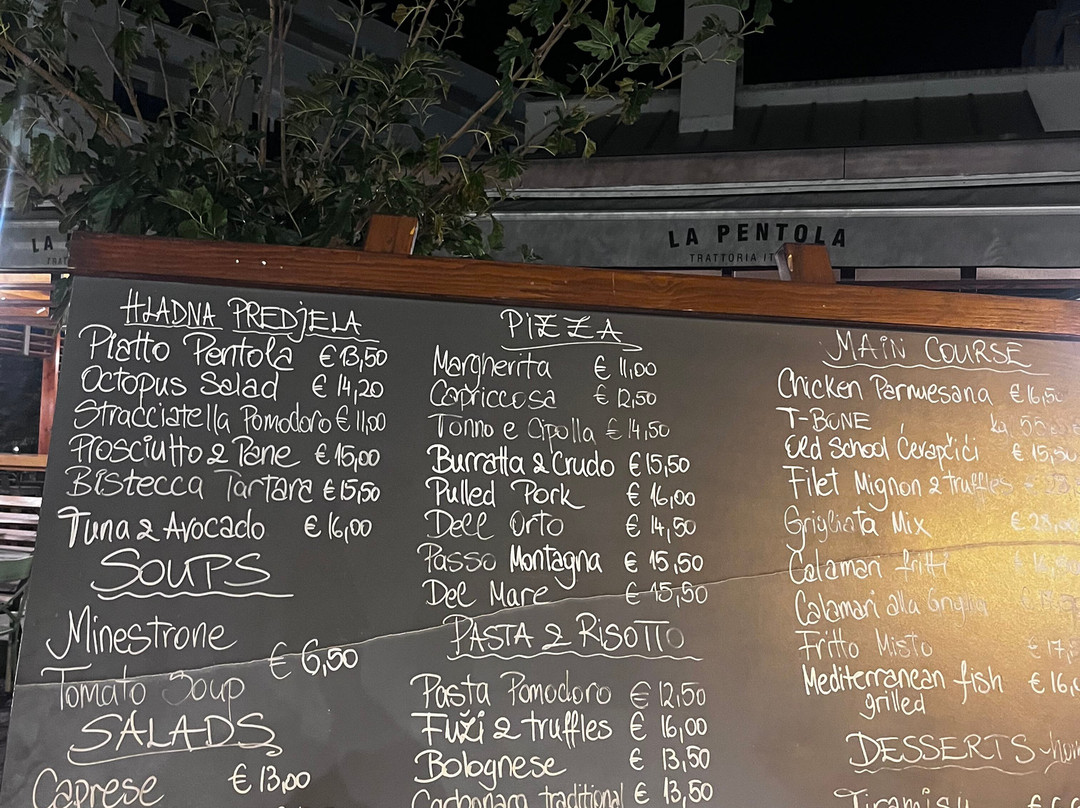 LA
LA PENTOLA
TRATTORIA
HLADNA PREDJELA
Piatto Pentola €13,50
Octopus Salad €14,20
Stracciatella Pomodoro €11,00
Prosciutto & Pane €15,00
Bistecca Tartara €15,50
Tuna & Avocado €16,00
SOUPS
Minestrone
€6,50
Tomato Soup
SALADS
Caprese €13,00
PIZZA
Margherita €11,00
Capriccosa €12,50
Tonno e Cipolla €14,50
Burratta & Crudo €15,50
Pulled Pork €16,00
Dell Orto €14,50
Passo Montagna €15,50
Del Mare €15,50
PASTA & RISOTTO
Pasta Pomodoro €12,50
Fuži & truffles €16,00
Bolognese €13,50
Carbonara traditional €13,50
MAIN COURSE
Chicken Parmesana €16,50
T-BONE kg
Old School Ćevapčići €15,50
Filet Mignon & truffles
Grigliata Mix
Calamari fritti
Calamari alla Griglia
Fritto Misto
Mediterranean fish
grilled
DESSERTS